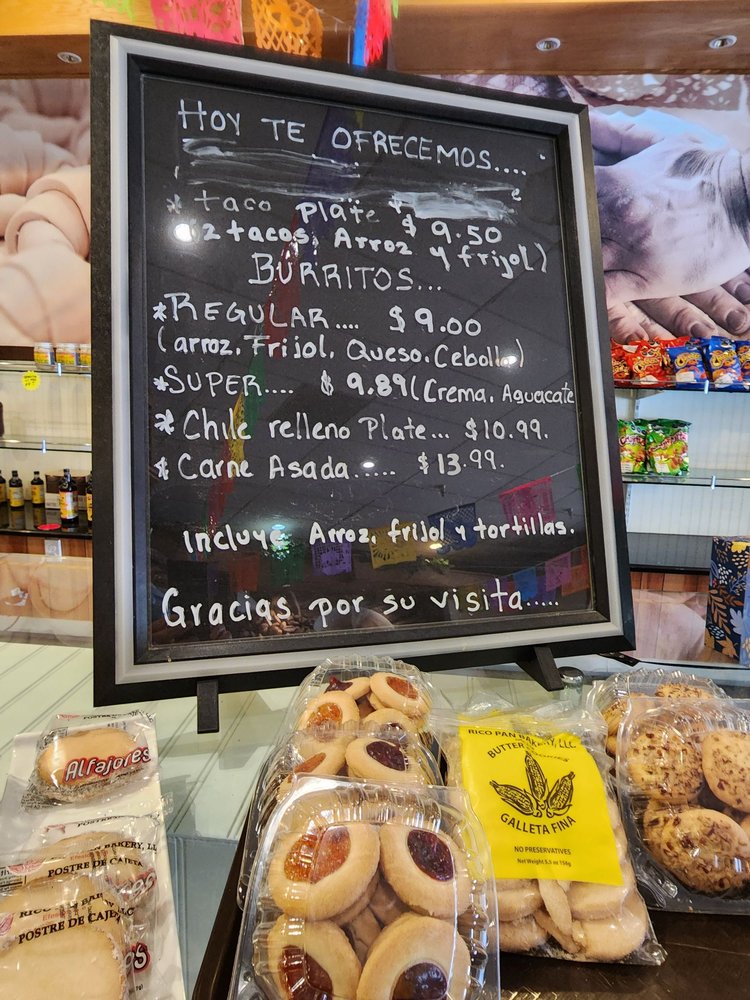 HOY TE OFRECEMOS....
* taco plate $ 9.50
(2 tacos, Arroz y frijol)
BURRITOS...
*REGULAR.... $9.00
(arroz, Frijol, Queso, Cebolla)
*SUPER.... $ 9.89 (Crema, Aguacate
* Chile relleno Plate... $10.99.
* Carne Asada..... $13.99.
Incluye Arroz, frijol y tortillas.
Gracias por su visita.....
Alfajores
POSTRE DE CAJETA
POSTRE DE CAJETA
RICO PAN BAKERY, LLC
BUTTER
GALLETA FINA
NO PRESERVATIVES
Net Weight 5.5 oz 156g